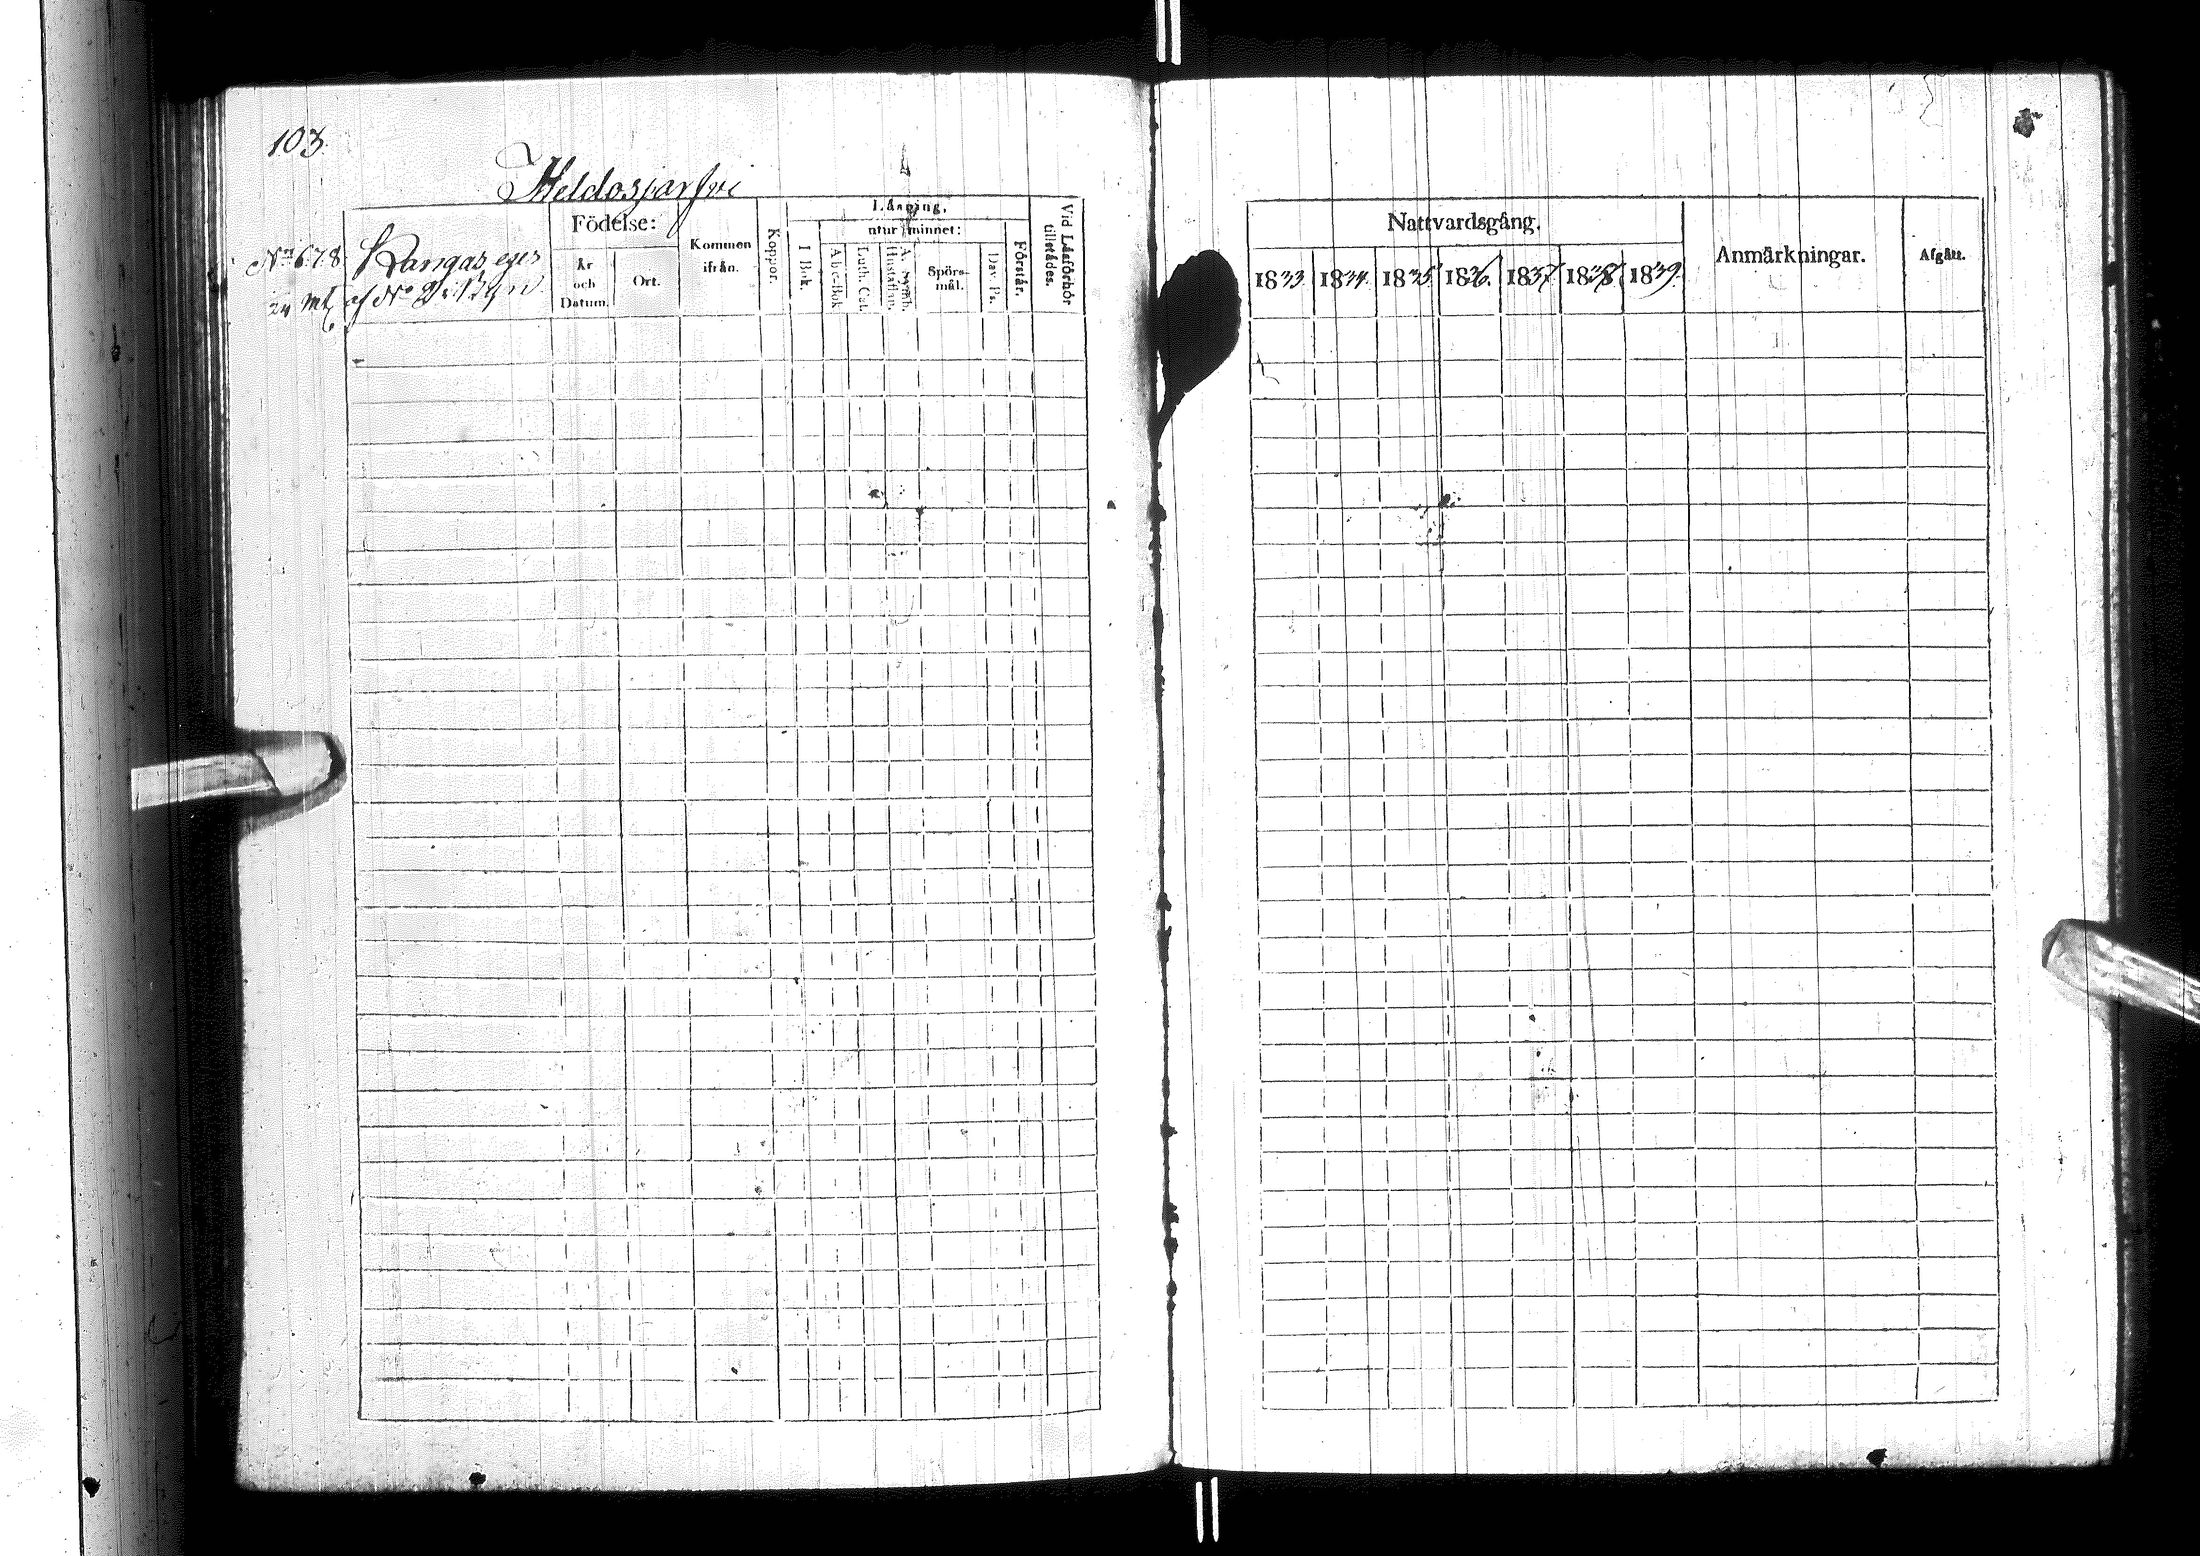 103.
Heldosjärfvi
No 6.7.8. Kangas eges
24 Mtl af No 2 i Byn
Födelse:
År och Datum.
Ort.
Kommen ifrån.
Koppor.
Läsning,
I Bok.
utur minnet:
Abc-Bok
Luth. Cat.
Hustaflan. A. Symb.
Spörs-mål.
Dav. Ps.
Förstår.
Vid Läsförhör tillstädes.
Nattvardsgång.
1833
1834
1835
1836.
1837
1838
1839.
Anmärkningar.
Afgått.